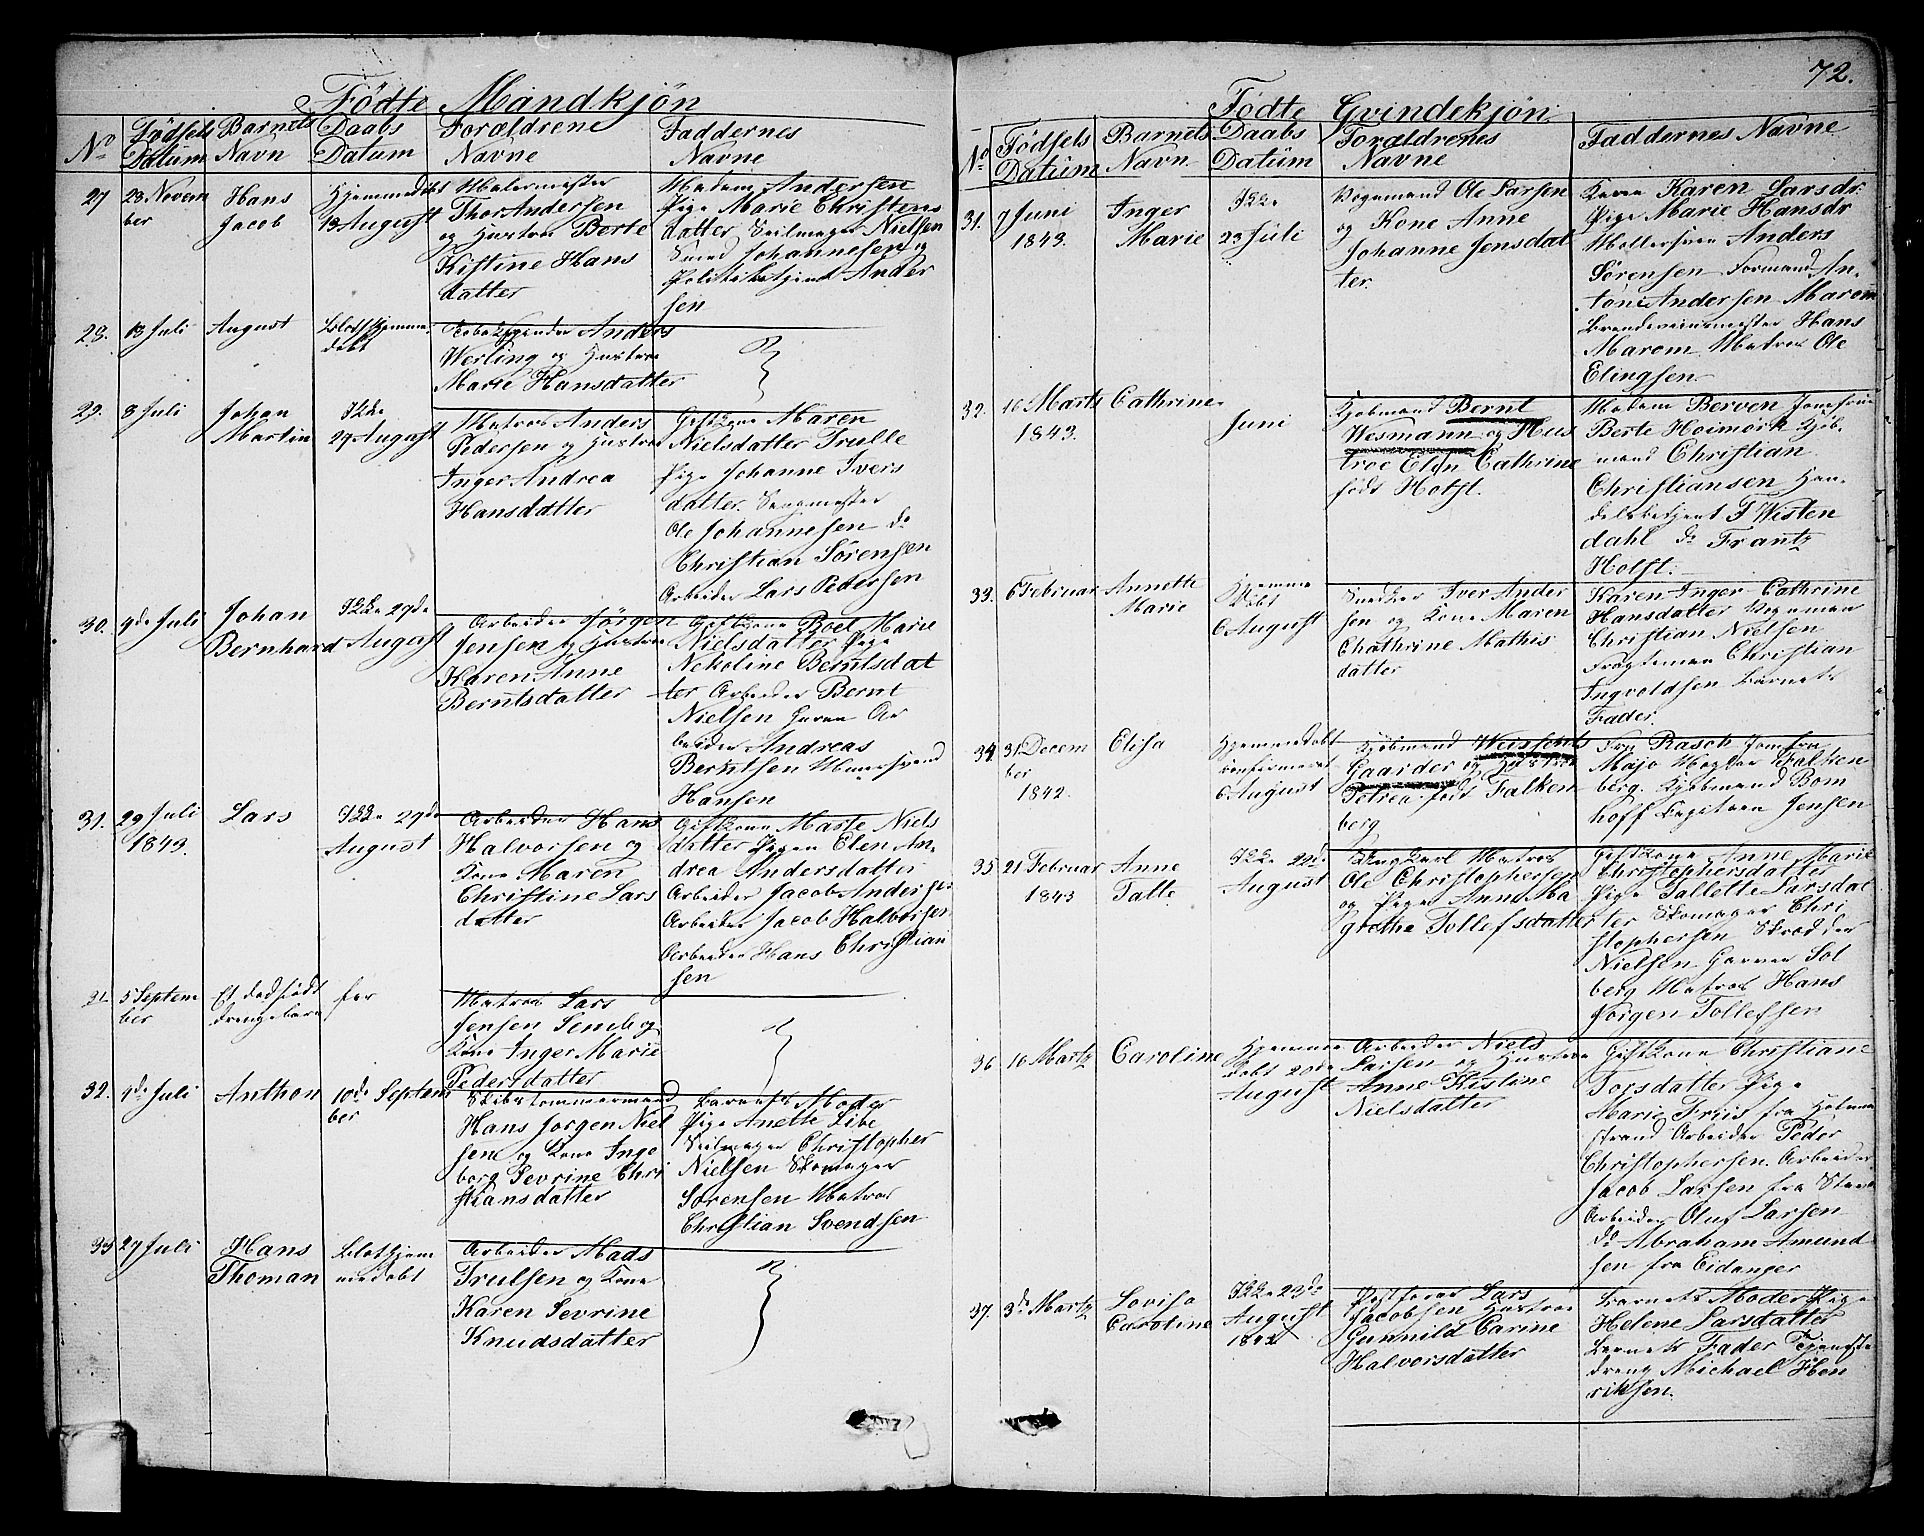 72.
Fødte Mandkjøn
No Fødsels Datum Barnets Navn Daabs Datum Forældrene Navne Faddernes Navne
27 28 Novem
ber
Hans
Jacob
Hjemmedøbt
13 August
Malermester
Thor Andersen
og Hustroe Berte
Kistine Hans
datter
Madam Andersen
Pige Marie Christens
datter Seilmager Nielsen
Smed Johannesen og
Politibetjent Ander
sen
28. 13 Juli August
Blot hjemme
døbt
Anders
Werling og Hustroe
Marie Hansdatter
29. 8 Juli
Johan
Martin
Ikke
29 August
Matros Anders
Pedersen og Hustroe
Inger Andrea
Hansdatter
Giftkone Maren
Nielsdatter Trulle
Pige Johanne Ivers
datter
Ole Johannesen do
Christian Sörensen
Arbeider Lars Pedersen
30. 9de Juli
Johan
Bernhard
Ikke 29de
August
Arbeider Jörgen
Jensen og Hustroe
Karen Anne
Berntsdatter
Giftkone Boel Marie
Nielsdatter Pige
Nekoline Berntsdat
ter Arbeider Bernt
Nielsen Ar
beider Andreas
Berntsen Muursvend
Hansen
31. 29 Juli
1843.
Lars
Ikke 29de
August
Arbeider Hans
Halvorsen og
Kone Maren
Christine Lars
datter
Giftkone Marte Niels
datter Pigen Elen An
drea Andersdatter
Arbeider Jacob Anderse
Arbeider Jacob Halvorsen
Arbeider Hans Christian
sen
31. 5 Septem
ber
Et dødfødt
Drengebarn
Matros Lars
Jensen og
Kone Inger Marie
Pedersdatter
32. 1de Juli Anthon
10de Septem
ber
Skibstömmermand
Hans Jorgen Niel
sen og Kone Inge
borg Sevrine Chri
stiansdatter
Barnets Moder
Pige Anette Libe
Seilmager Christopher
Nielsen Skomager
Sorensen Matros
Christian Svendsen
33 27 Juli
Hans
Thoman
Blot hjem
medøbt
Arbeider Mads
Trulsen og Kone
Karen Sevrine
Knudsdatter
Fødte Qvindekjön
No Fødsels Datum Barnets Navn Daabs Datum Forældrenes Navne Faddernes Navne
31. 7 Juni
1843.
Inger
Marie
Ikke
23 Juli
Vognmand Ole Larsen
og Kone Anne
Johanne Jensdat
ter.
Karen Larsdr
Pige Marie Hansdr
Anders
Sörensen Formand An
tone Andersen Marom
Brændeviinsmester Hans
Marom Matros Ole
Elingsen
32. 16 Marts
1843.
Cathrine
Juni
Kjøbmand Bernt
Wesmann og Hus
troe Elen Cathrine
født Holst.
Madam Berven Jomfrue
Berte Hoimörk Kjøb
mand Christian
Christiansen Han
delsbetjent F Wisten
dahl do Frantz
Holst.
33. 6 Februar
Annette
Marie
Hjemme
døbt
6 August
Snedker Iver Ander
sen og Kone Maren
Chathrine Mathis
datter
Karen Inger Cathrine
Hansdatter
Christian Nielsen
Christian
Ingvoldsen Barnets
Fader.
34. 31 Decem
ber
1842.
Elisa
Hjemmedøbt
confirmeret
6 August
Kjøbmand
Gaarder og Hustroe
Petrea født Falken
berg
Fru Rasch Jomfru
Maja Falken
berg. Kjøbmand Bom
hoff Jensen
35. 21 Februar
1843
Anne
Talte
Ikke 22de
August
Ungkarl Matros
Ole Christophersen
og Pige Anne Ma
grethe Tollefsdatter
Giftkone Anne Marie
Christophersdatter
Pige Tallette Larsdat
ter Skomager Chri
stophersen Skrædder
Nielsen Garver Sol
berg Matros Hans
Jörgen Tollefsen
36. 16 Martz Caroline
Hjemme
døbt 20de
August
Arbeider Niels
Larsen og Hustroe
Anne Kistine
Nielsdatter
Giftkone Christiane
Torsdatter Pige
Marie Friis fra Holme
strand Arbeider Peder
Christophersen. Arbeider
Jacob Larsen fra
Arbeider Oluf Larsen
do Abraham Amund
sen fra Eidanger
37. 3de Martz
Lovisa
Carotine
Ikke 23de
August
1842
Lars
Jacobsen Hustroe
Gunnild Carine
Halvorsdatter
Barnets Moder Pige
Helene Larsdatter
Barnets Fader Tjeneste
dreng Michael Hen
riksen.